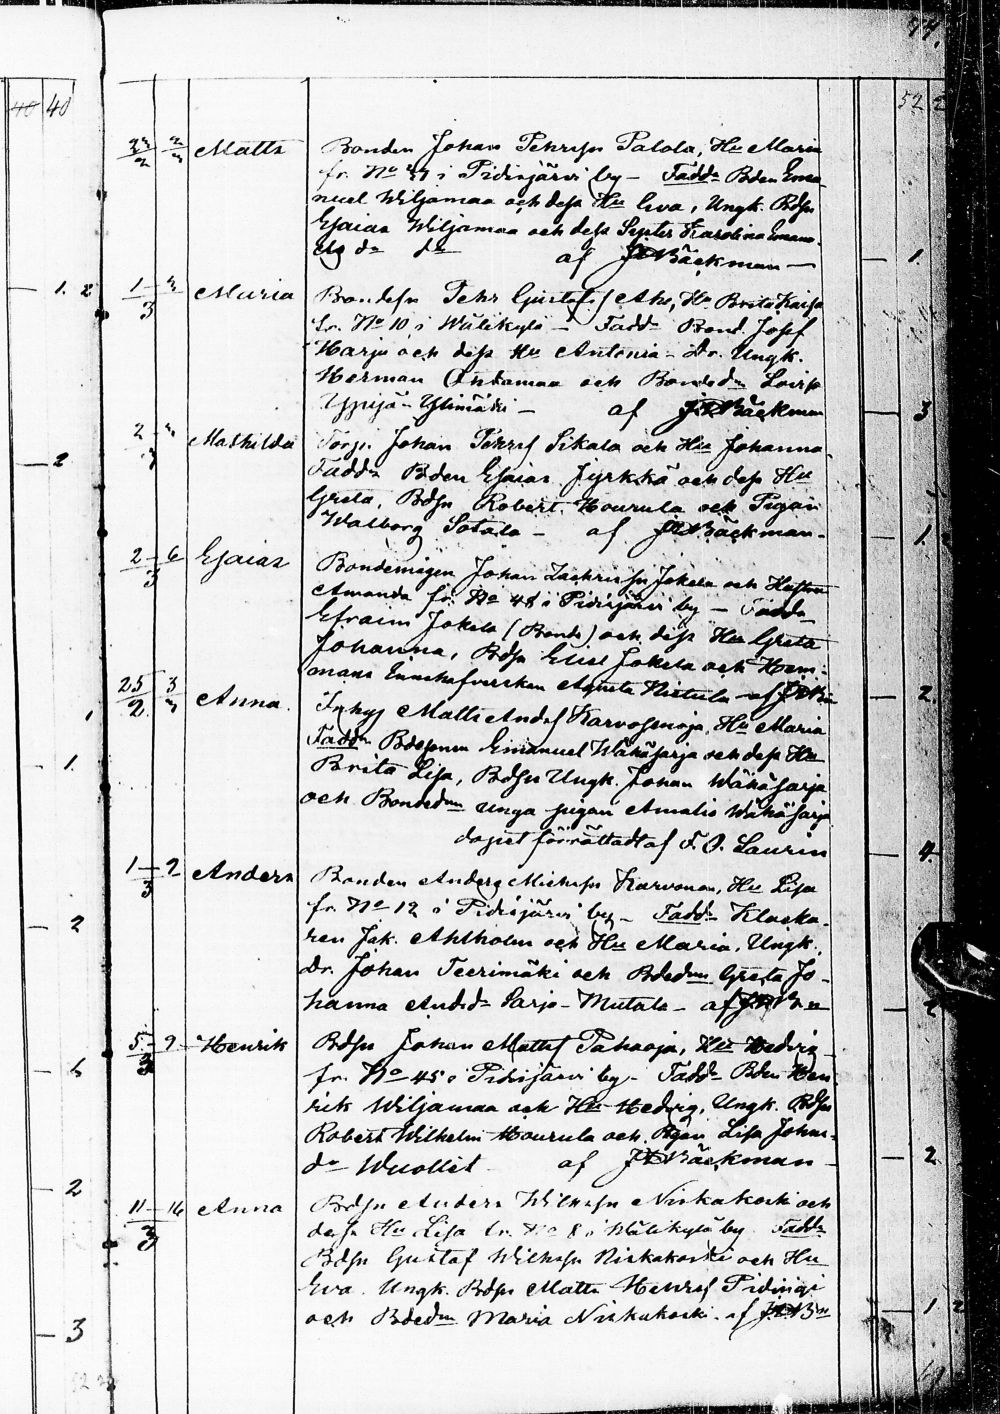 94.
40 40
52 2
23/2 2/3 Matts Bonden Johan Pehrsn Palola, Hu Maria
fr. No 37 i Pidisjärvi by – Fadd. Bden Ema-
nuel Wiljamaa och dess Hu Eva, Ungk. Bdsn
Esaias Wiljamaa och dess Syster Karolina Eman-
af JABäckman – 1.
1 – 3 Maria Bondesn Pehr Gustafsf Ahe, Hu Brita Kaisa 1. 2
3 fr. No 10 i Wälikylä – Fadd. Bond. Josef
Harju och dess Hu Antonia – Dr. Ungk.
Herman Ondamaa och Bondedn Lovisa
Yppijä – Ylimäki – af JABäckman 3
2 – 3 Mathilda Torp. Johan Pehrsf Sikala och Hu Johanna
Fadd. Bden Esaias Jyrkkä och dess Hu 2
Greta, Bdsn Robert Hourula och Pigan
Walborg Sotala – af JABäckman – 1
2 – 6 Esaias Bondemågen Johan Zachrissn Jokela och Hustrun
3 Amanda fr. No 48 i Pidisjärvi by – Fadd.
Efraim Jokela (Bonde) och dess Hu Greta
Johanna, Bdsn Elisé Jokela och Hem-
25/2 3/3 Anna. mans Agneta 2
Inhys Matts Andsf Karvosenoja, Hu Maria
Fadd. Bdesonen Emanuel Wähäsarja och dess Hu
Brita Lisa, Bdsn Ungk. Johan Wähäsarja 1.
och Bondedn unga pigan Amalia Wähäsarja
dopet förrättadt af F. O. Laurin 4
1 – 7 Anders Bonden Anders Michelsn Karvonen, Hu Lisa
3 fr. No 12 i Pidisjärvi by – Fadd. Klocka-
ren Jak. Ahlholm och Hu Maria, Ungk. 2
Dr. Johan Teerimäki och Bdedn Greta Jo-
hanna Andsdr Sarja-Mutala – af JABn 2
5 – 7 Henrik Bdsn Johan Mattsf Pahaoja, Hu Hedvig
3 fr. No 45 i Pidisjärvi by – Fadd. Bden Hen-
rik Wiljamaa och Hu Hedvig, Ungk. Bdsn
Robert Wilhelm Hourula och Pigan Lisa Johans-
dr Wuollet af JABäckman – 2
2
11 – 16 Anna Bdsn Anders Wilhelmsn Niskakoski och
3 dess Hu Lisa fr. No 8 i Wälikylä by Fadd.
Bdsn Gustaf Wilhelmsn Niskakoski och Hu
Eva. Ungk. Bdsn Matts Henrsf Pidingi
och Bdedn Maria Niskakoski. af JABn 1 2
3